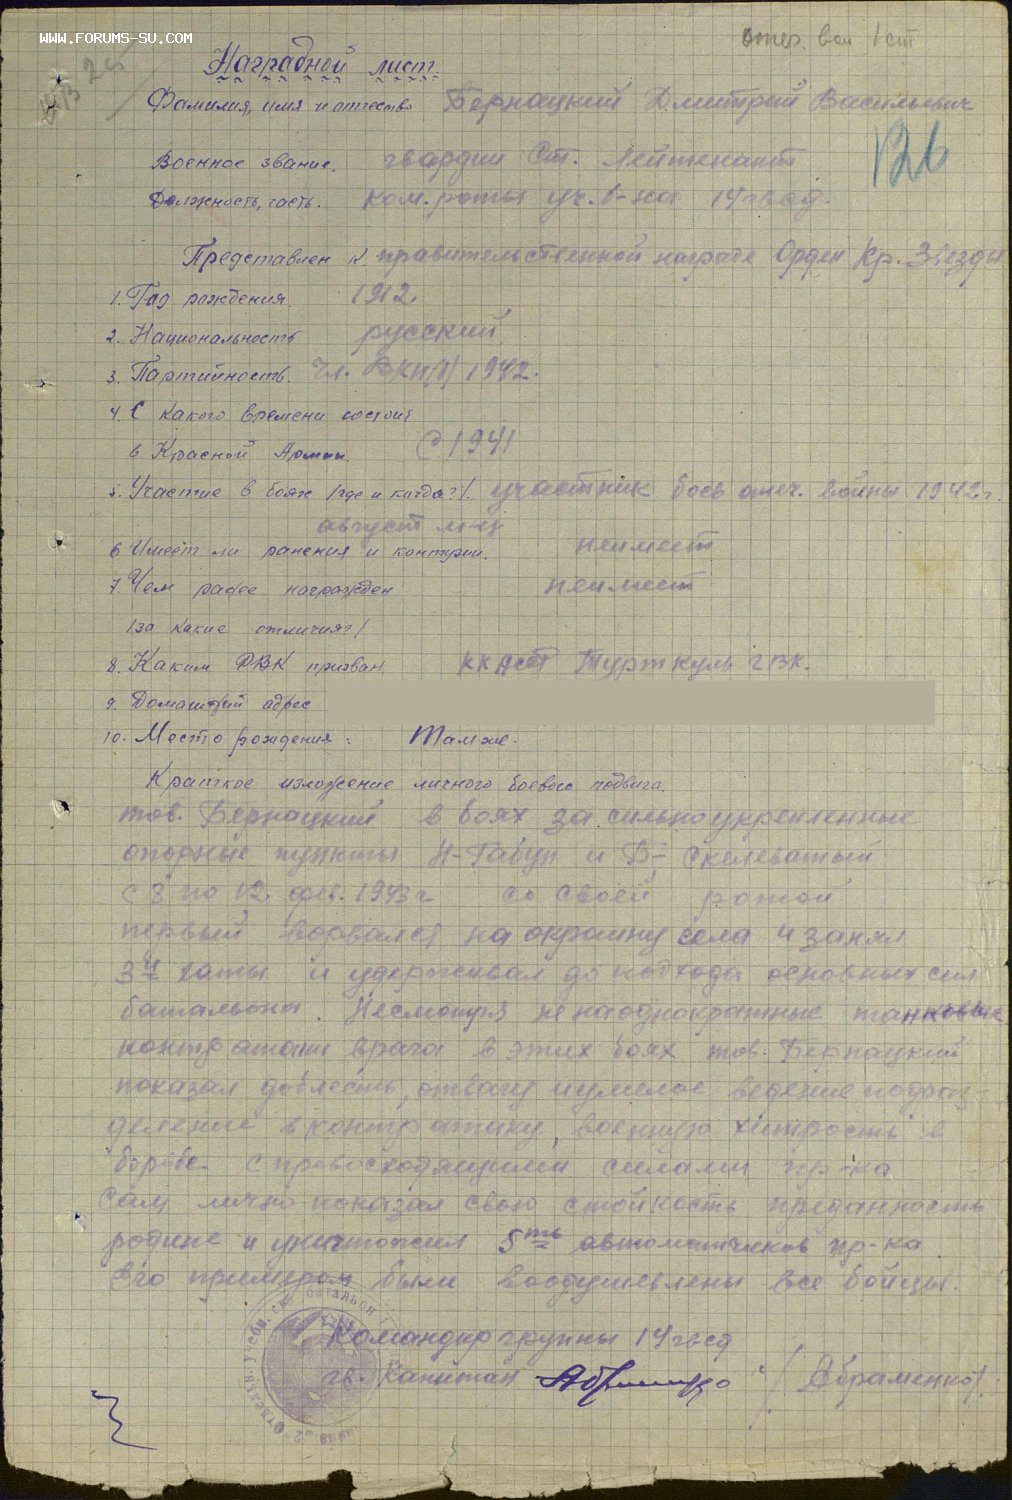 WWW.FORUMS-SU.COM
отеч. вой 1 ст
Наградной лист
Фамилия, имя и отчество Бернацкий Дмитрий Васильевич
126
Военное звание. гвардии Ст. Лейтенант
Должность, часть. ком. роты уч. б-на 14 гвсд.
Представлен к правительственной награде Орден Кр. Звезды
1. Год рождения. 1912.
2. Национальность русский
3. Партийность. Чл. ВКП(б) 1942.
4. С какого времени состоит
в Красной Армии. С 1941
5. Участие в боях /где и когда?/. участник боев отеч. войны 1942 г.
август м-ц
6 Имеет ли ранения и контузии. неимеет
7. Чем ранее награжден неимеет
/за какие отличия?/
8. Каким РВК призван ККАССР Турткуль ГВК.
9. Домашний адрес
10. Место рождения: Там же.
Краткое изложение личного боевого подвига.
тов. Бернацкий в боях за сильно укрепленные
опорные пункты Н-Габун и Б- Скелеватый
с 8 по 12. фев. 1943 г со своей ротой
первый ворвался на окраину села и занял
3 хаты и удерживал до подхода основных сил
батальона. Несмотря на неоднократные танковые
контратаки врага в этих боях тов. Бернацкий
показал доблесть, отвагу и умелое ведение подраз-
деление в контратаку, военную хитрость в
борьбе с превосходящими силами пр-ка
Сам лично показал свою стойкость преданность
родине и уничтожил 5ть автоматчиков пр-ка.
Его примером были воодушевлены все бойцы.
Командир группы 14 гвсд
гв. Капитан /Абраменко/.